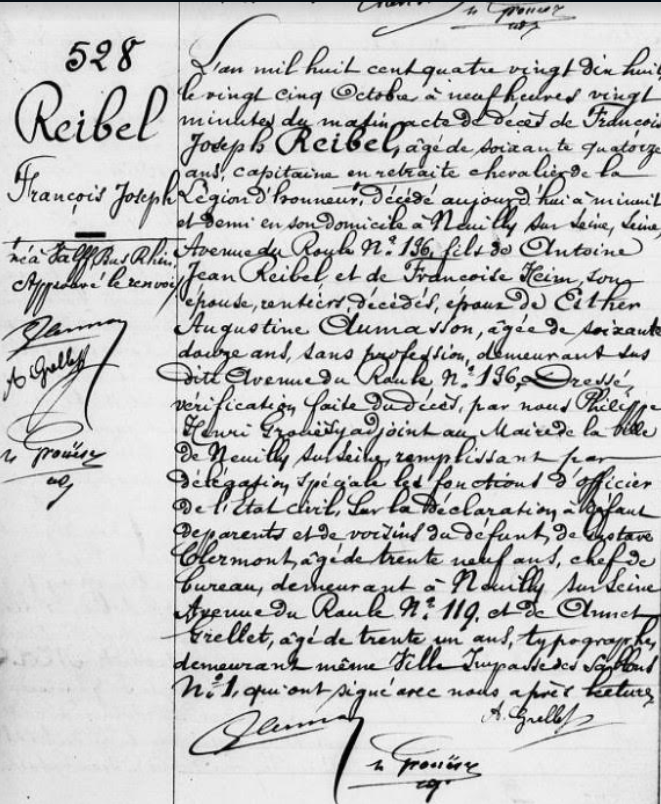 528
Reibel
François Joseph
né à Valff, Bas Rhin
Approuvé le renvoi
A. Grellet
L'an mil huit cent quatre vingt dix huit
le vingt cinq Octobre à neuf heures vingt
minutes du matin, acte de décès de François
Joseph Reibel, âgé de soixante quatorze
ans, capitaine en retraite chevalier de la
Légion d'honneur, décédé aujourd'hui à minuit
et demi en son domicile à Neuilly sur Seine, Seine,
Avenue du Roule N° 136, fils de Antoine
Jean Reibel et de Françoise Heim, son
épouse, rentiers, décédés, époux de Esther
Augustine Aumasson, âgée de soixante
douze ans, sans profession, demeurant sus
dite Avenue du Roule N° 136, Dressé,
vérification faite du décès, par nous Philippe
Henri adjoint au Maire de la ville
de Neuilly sur Seine, remplissant par
délégation spéciale les fonctions d'officier
de l'Etat civil, Sur la Déclaration à défaut
de parents et de voisins du défunt, de Gustave
Clermont, âgé de trente neuf ans, chef de
bureau, demeurant à Neuilly sur Seine
Avenue du Roule N° 119, et de Annet
Grellet, âgé de trente un ans, typographe,
demeurant même Ville Impasse des Sablons
N° 1, qui ont signé avec nous après lecture
A. Grellet